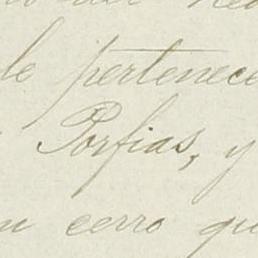 le pertenece
Porfias, y
un cerro qu